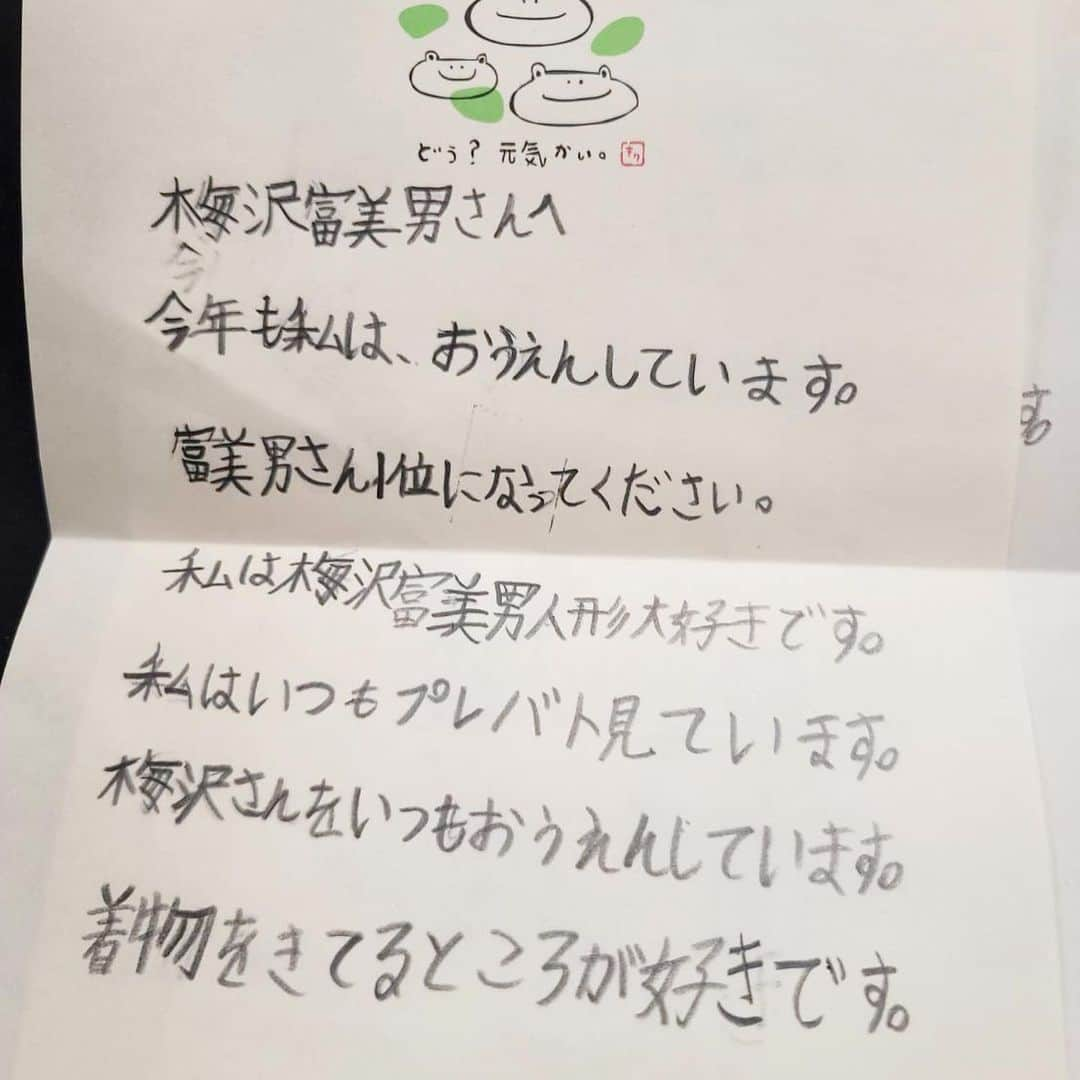 どう？元気かい。
梅沢富美男さんへ
今
今年も私は、おうえんしています。
富美男さん1位になってください。
私は梅沢富美男人形大好きです。
私はいつもプレバト見ています。
梅沢さんをいつもおうえんしています。
着物をきてるところが好きです。
す。